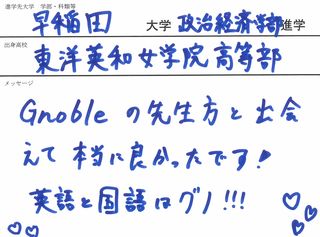 進学先大学　学部・科類等
早稲田 大学 政治経済学部 進学
出身高校
東洋英和女学院高等部
メッセージ
Gnobleの先生方と出会
えて本当に良かったです!
英語と国語はグノ!!!